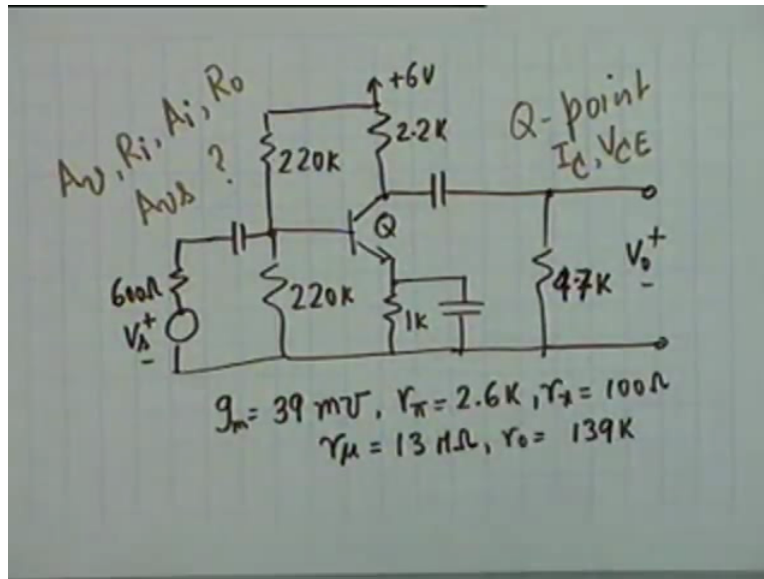 Av, Ri, Ai, Ro
Avs ?
+6V
2.2K
220K
Q-point
IC, VCE
Q
600Ω
Vs
+
-
220K
1K
4.7K
Vo
+
-
gm = 39 m℧, rπ = 2.6K, rx = 100Ω
rμ = 13 MΩ, ro = 139K